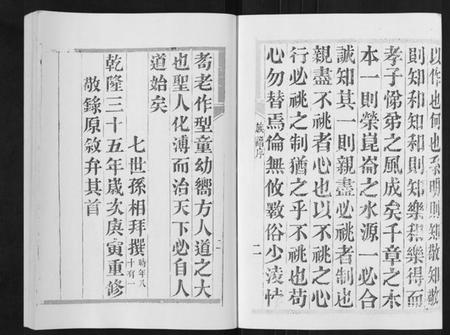 以作也何也系明則知敬知敬
則知和知和則知樂知樂得而
孝子悌弟之風成矣千章之木
本一則榮崑崙之水源一必合
誠知其一則親盡必祧者制也
親盡不祧者心也以不祧之心
行必祧之制猶之乎不祧也苟
心勿替焉倫無攸斁俗少淩怯
族譜序
二
耇老作型童幼嚮方人道之大
也聖人化溥而治天下必自人
道始矣
七世孫相拜撰時年八十有一
乾隆三十五年歲次庚寅重修
敬錄原敘弁其首